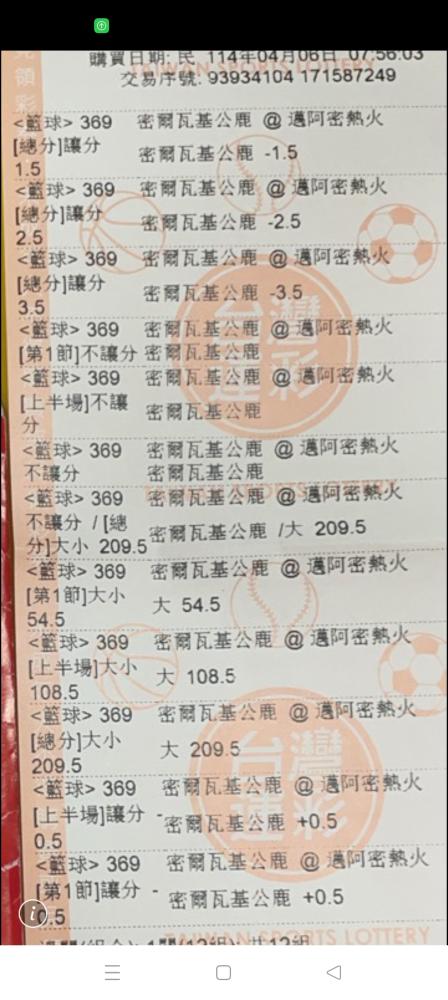 購買日期: 民 114年04月06日 07:56:03
交易序號: 93934104 171587249
<籃球> 369 密爾瓦基公鹿 @ 邁阿密熱火
[總分]讓分 密爾瓦基公鹿 -1.5
1.5
<籃球> 369 密爾瓦基公鹿 @ 邁阿密熱火
[總分]讓分 密爾瓦基公鹿 -2.5
2.5
<籃球> 369 密爾瓦基公鹿 @ 邁阿密熱火
[總分]讓分 密爾瓦基公鹿 -3.5
3.5
<籃球> 369 密爾瓦基公鹿 @ 邁阿密熱火
[第1節]不讓分 密爾瓦基公鹿
<籃球> 369 密爾瓦基公鹿 @ 邁阿密熱火
[上半場]不讓 密爾瓦基公鹿
分
<籃球> 369 密爾瓦基公鹿 @ 邁阿密熱火
不讓分 密爾瓦基公鹿
<籃球> 369 密爾瓦基公鹿 @ 邁阿密熱火
不讓分 / [總 密爾瓦基公鹿 /大 209.5
分]大小 209.5
<籃球> 369 密爾瓦基公鹿 @ 邁阿密熱火
[第1節]大小 大 54.5
54.5
<籃球> 369 密爾瓦基公鹿 @ 邁阿密熱火
[上半場]大小 大 108.5
108.5
<籃球> 369 密爾瓦基公鹿 @ 邁阿密熱火
[總分]大小 大 209.5
209.5
<籃球> 369 密爾瓦基公鹿 @ 邁阿密熱火
[上半場]讓分 - 密爾瓦基公鹿 +0.5
0.5
<籃球> 369 密爾瓦基公鹿 @ 邁阿密熱火
[第1節]讓分 - 密爾瓦基公鹿 +0.5
0.5
TAIWAN SPORTS LOTTERY
台灣
運彩
領
彩